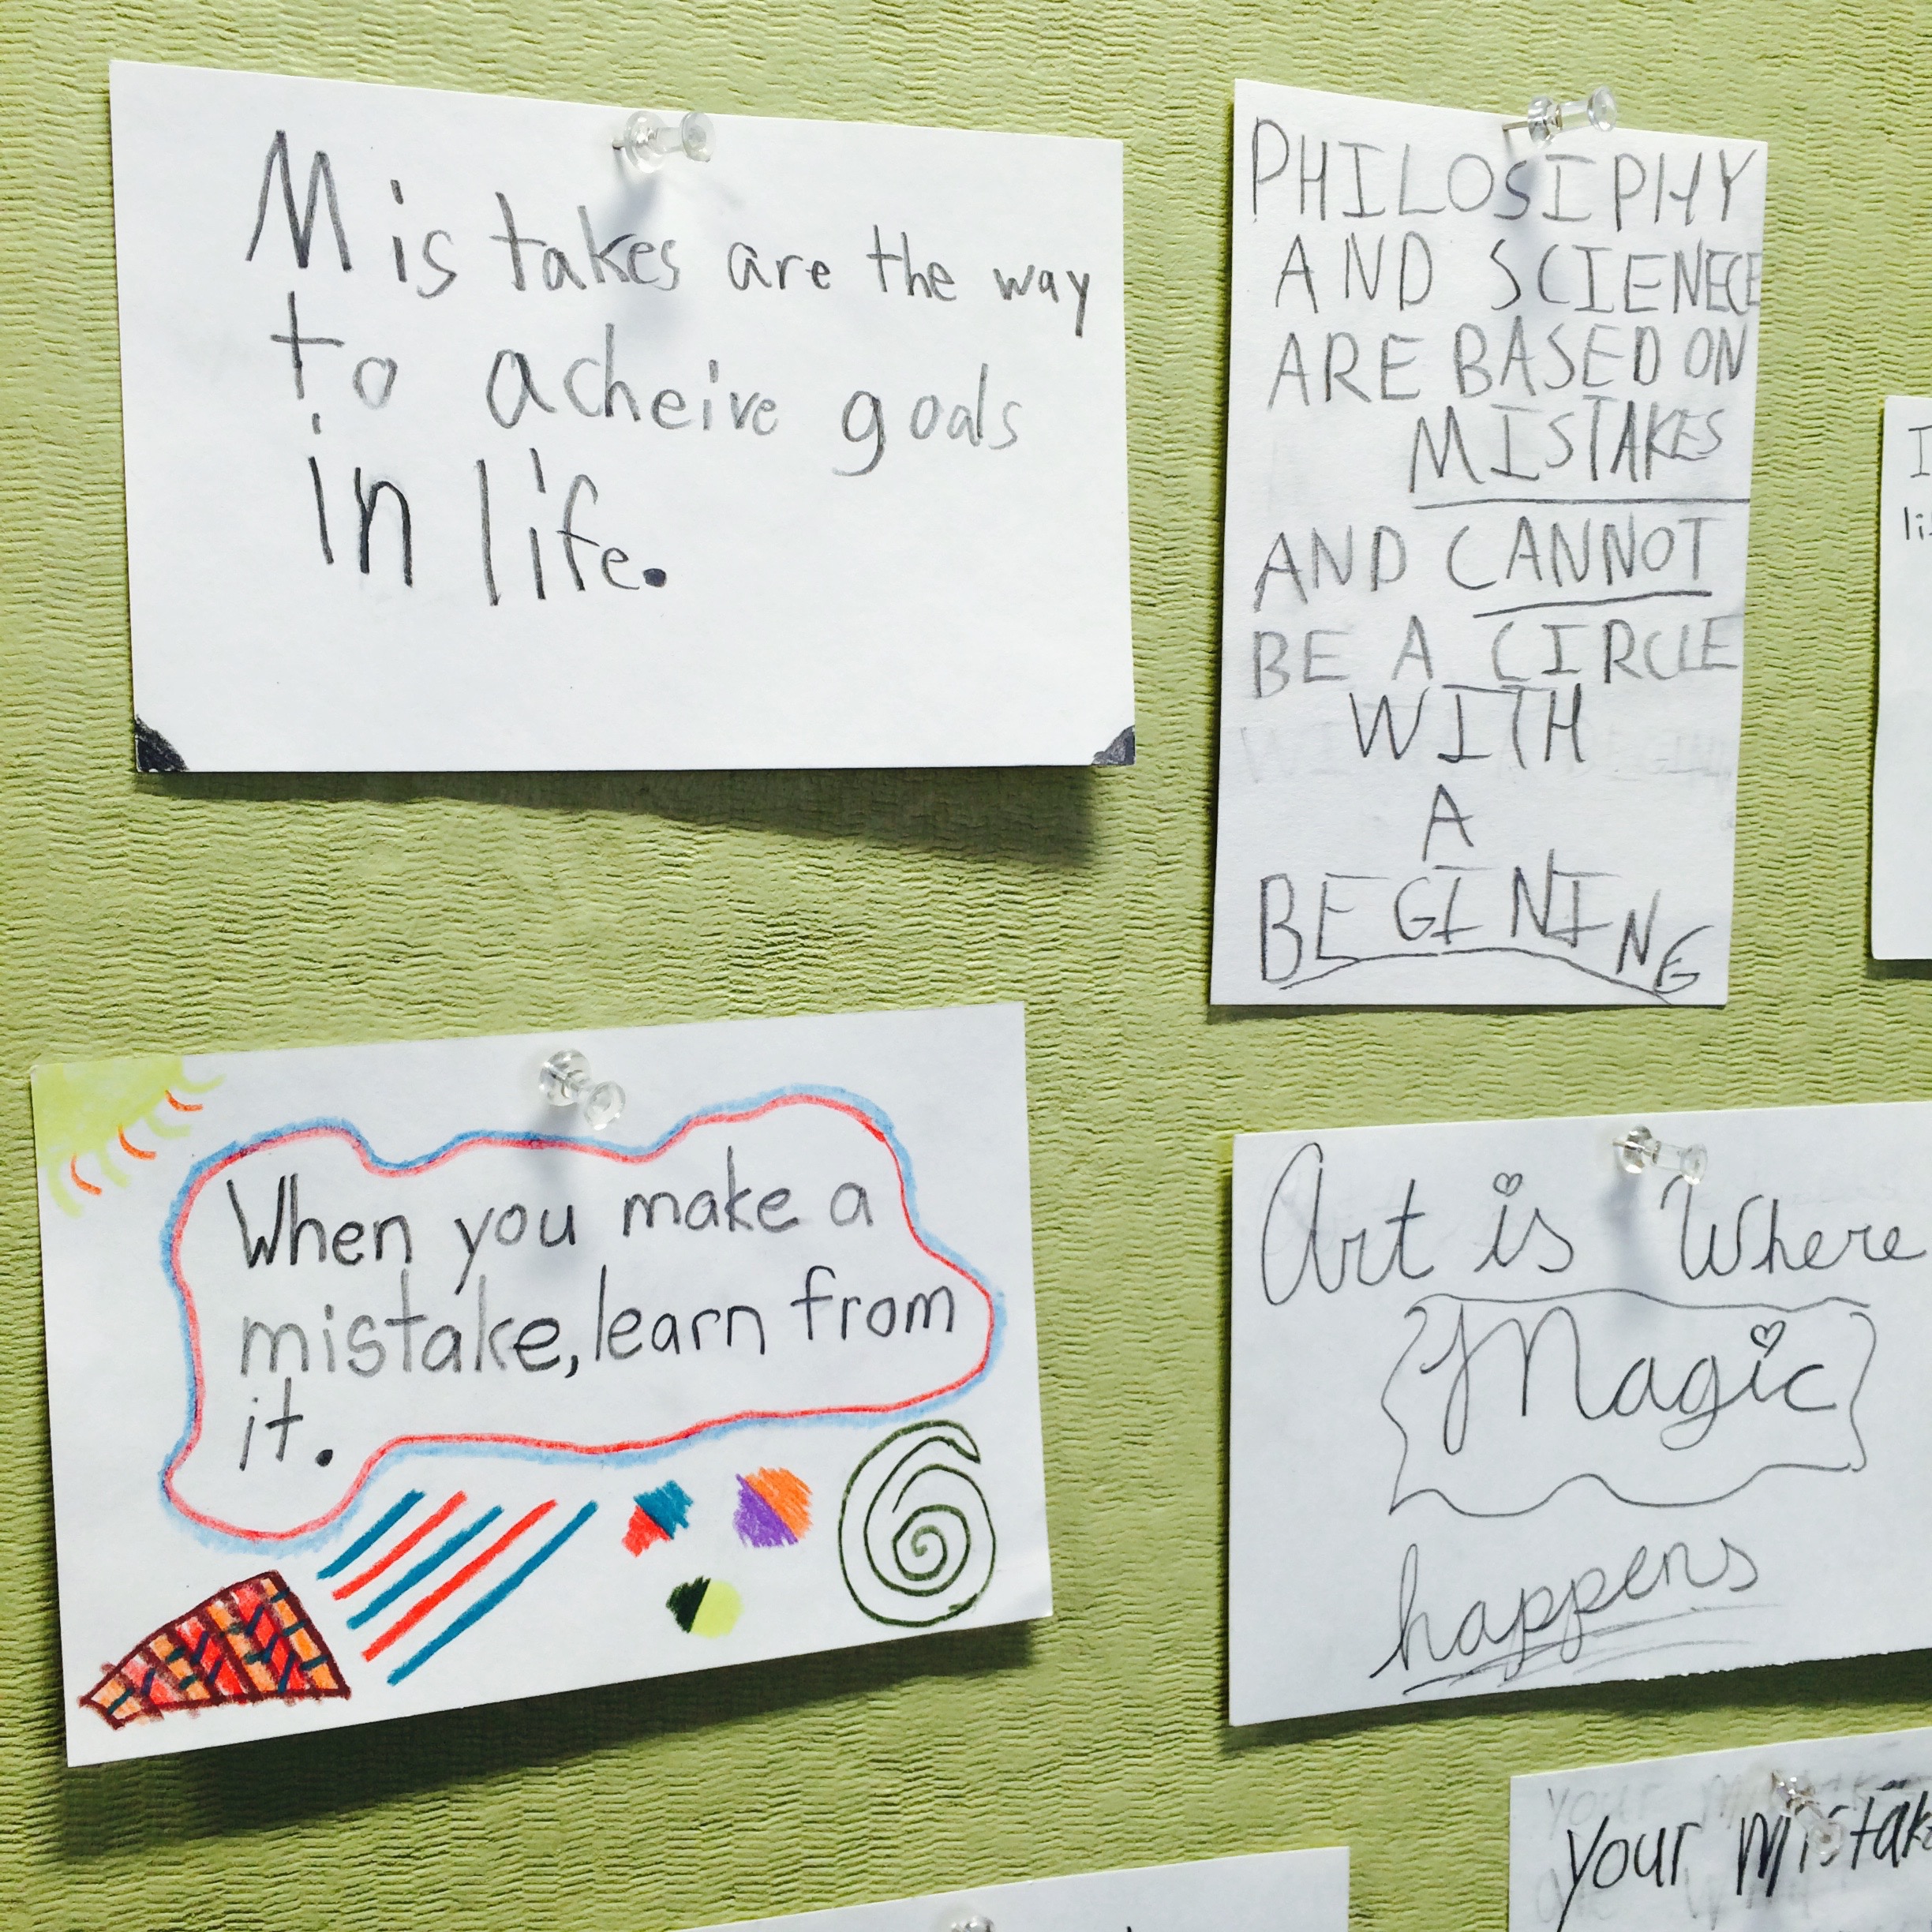 Mistakes are the way
to acheive goals
in life.
PHILOSIPHY
AND SCIENECE
ARE BASED ON
MISTAKES
AND CANNOT
BE A CIRCLE
WITH
A
BEGINING
When you make a
mistake, learn from
it.
Art is Where
Magic
happens
your